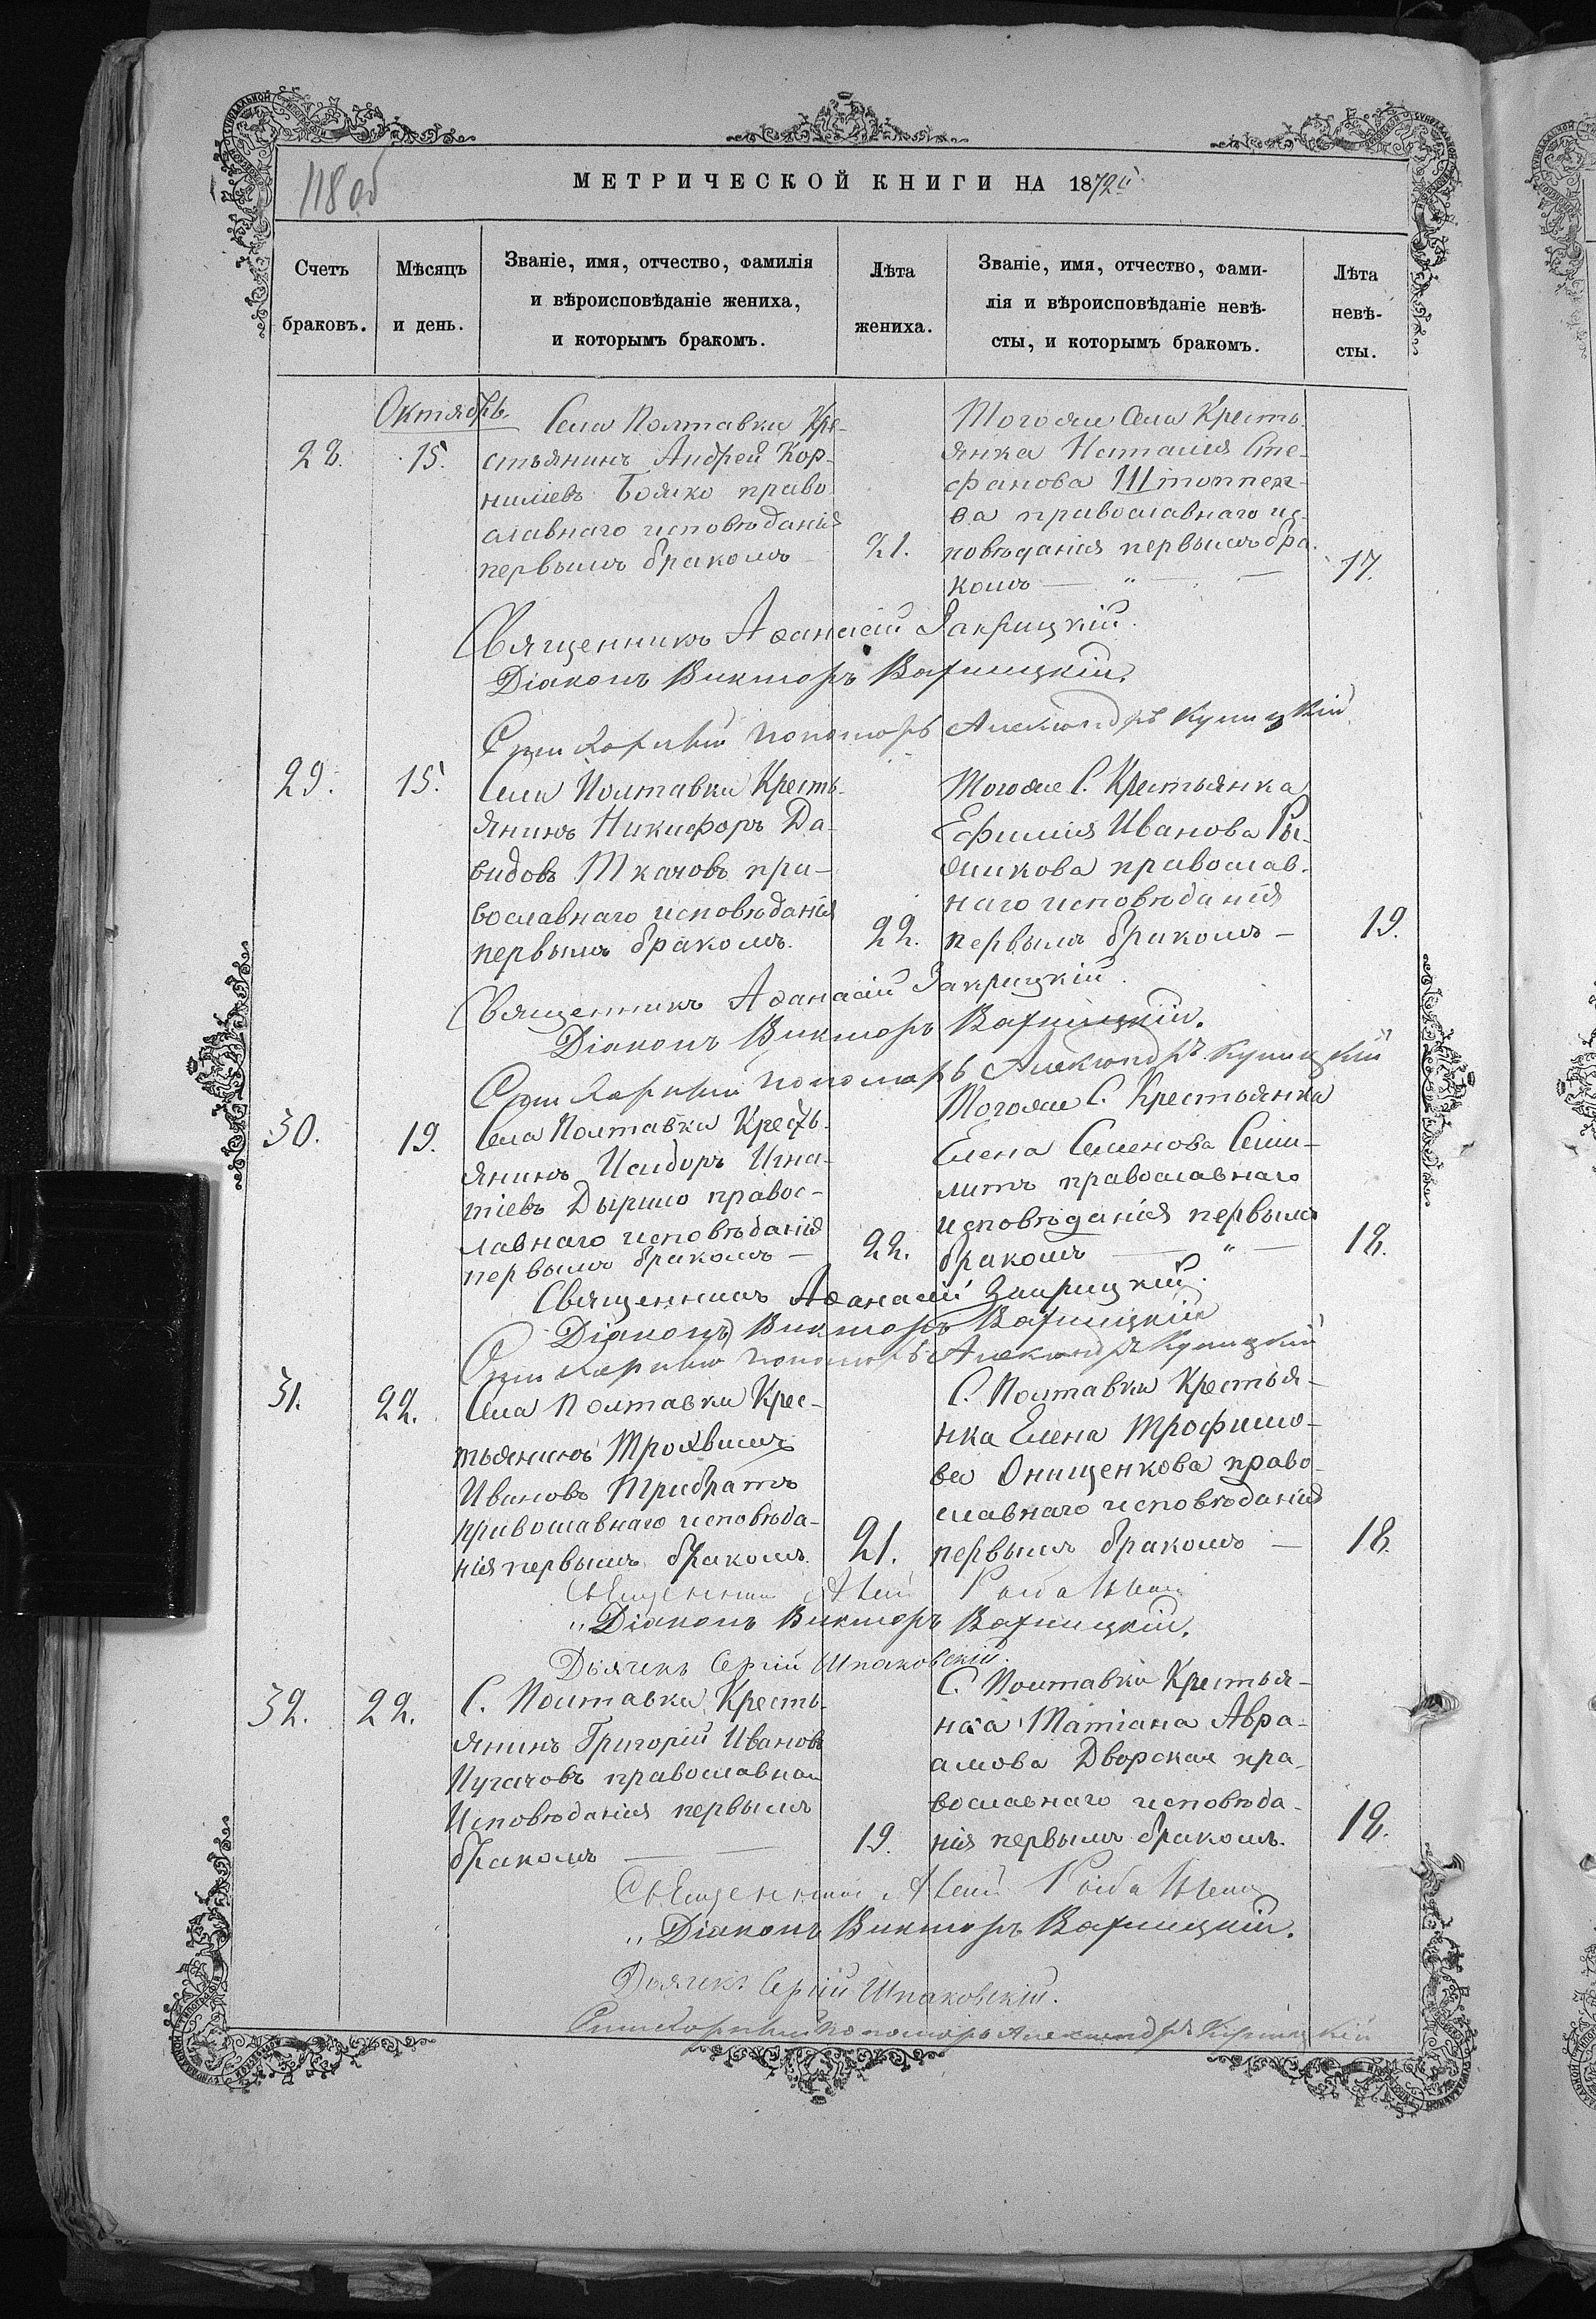 118 об
МЕТРИЧЕСКОЙ КНИГИ НА 1872й
Счетъ браковъ.
Мѣсяцъ и день.
Званіе, имя, отчество, фамилія
и вѣроисповѣданіе жениха,
и которымъ бракомъ.
Лѣта жениха.
Званіе, имя, отчество, фами-
лія и вѣроисповѣданіе невѣ-
сты, и которымъ бракомъ.
Лѣта невѣ-
сты.
Октябрь.
28.
15.
Села Полтавки Кре-
стьянинъ Андрей Кор-
ниліевъ Бойко право
славнаго исповѣданія
первымъ бракомъ
21.
Тогоже Села Кресть
янка Наталія Сте-
фанова
ва православнаго ис-
повѣданія первымъ бра-
комъ — " —
17.
Священникъ Аѳанасій Закрицкій.
Діаконъ Викторъ Варницкій.
Пономарь Александръ Куницкій
29.
15.
Села Полтавки Кресть-
янинъ Никифоръ Да-
видовъ Ткачовъ пра-
вославнаго исповѣданія
первымъ бракомъ.
22.
Тогоже С. Крестьянка
Ефимія Иванова Ры-
жикова православ-
наго исповѣданія
первымъ бракомъ —
19.
Священникъ Аѳанасій Закрицкій.
Діаконъ Викторъ Варницкій.
Пономарь Александръ Куницкій
30.
19.
Села Полтавки Кресть-
янинъ Исидоръ Игна-
тіевъ православ-
лавнаго исповѣданія
первымъ бракомъ —
22.
Тогоже С. Крестьянка
Елена Семенова
православнаго
исповѣданія первымъ
бракомъ — " —
18.
Священникъ Аѳанасій Закрицкій.
Діаконъ Викторъ Варницкій
Пономарь Александръ Куницкій
31.
22.
Села Полтавки Крес-
тьянинъ Трохвимъ
Ивановъ Трибратъ
православнаго исповѣда-
нія первымъ бракомъ.
21.
С. Полтавки Крестья-
нка Елена Трофимо-
ва Онищенкова право-
славнаго исповѣданія
первымъ бракомъ —
18.
Священникъ
"Діаконъ Викторъ Варницкій.
Дьячекъ Сергій Шпаковскій.
32.
22.
С. Полтавки Кресть-
янинъ Григорій Ивановъ
Пугачовъ православнаго
Исповѣданія первымъ
бракомъ — —
19.
С. Полтавки Крестья-
нка Татіана Авра-
амова Дворская пра-
вославнаго исповѣда-
нія первымъ бракомъ.
18.
Священникъ
"Діаконъ Викторъ Варницкій.
Дьячекъ Сергій Шпаковскій.
Пономарь Александръ Куницкій